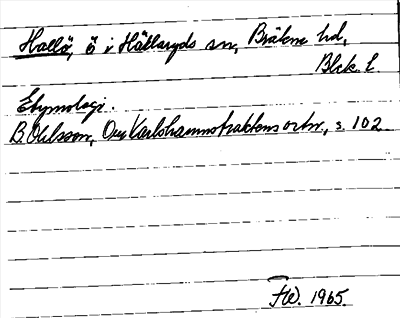 Hallö, ö i Hällaryds sn, Bräkne hd,
Blek. l.
Etymologi.
B. Ohlsson, Om Karlshamnstraktens ortn., s. 102
FW. 1965.